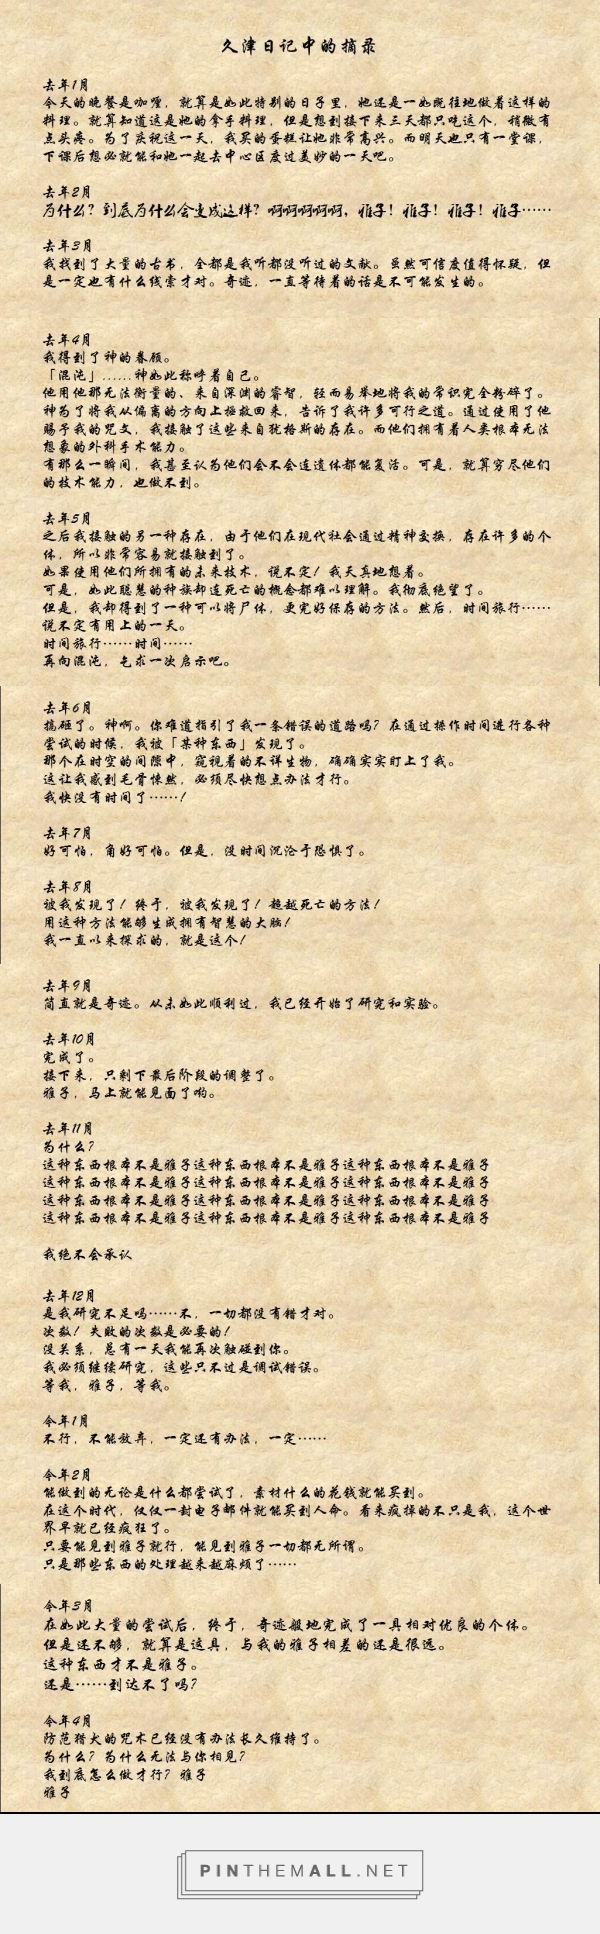 久津日记中的摘录
去年1月
今天的晚餐是咖喱，就算是如此特别的日子里，她还是一如既往地做着这样的
料理。就算知道这是她的拿手料理，但是想到接下来三天都只吃这个，稍微有
点头疼。为了庆祝这一天，我买的蛋糕让她非常高兴。而明天也只有一堂课，
下课后想必就能和她一起去中心区度过美妙的一天吧。
去年2月
为什么？到底为什么会变成这样？啊啊啊啊啊，雅子！雅子！雅子！雅子……
去年3月
我找到了大量的古书，全都是我听都没听过的文献。虽然可信度值得怀疑，但
是一定也有什么线索才对。奇迹，一直等待着的话是不可能发生的。
去年4月
我得到了神的眷顾。
「混沌」……神如此称呼着自己。
他用他那无法衡量的、来自深渊的睿智，轻而易举地将我的常识完全粉碎了。
神为了将我从偏离的方向上拯救回来，告诉了我许多可行之道。通过使用了他
赐予我的咒文，我接触了这些来自犹格斯的存在。而他们拥有着人类根本无法
想象的外科手术能力。
有那么一瞬间，我甚至认为他们会不会连遗体都能复活。可是，就算穷尽他们
的技术能力，也做不到。
去年5月
之后我接触的另一种存在，由于他们在现代社会通过精神交换，存在许多的个
体，所以非常容易就接触到了。
如果使用他们所拥有的未来技术，说不定！我天真地想着。
可是，如此聪慧的种族却连死亡的概念都难以理解。我彻底绝望了。
但是，我却得到了一种可以将尸体，更完好保存的方法。然后，时间旅行……
说不定有用上的一天。
时间旅行……时间……
再向混沌，乞求一次启示吧。
去年6月
搞砸了。神啊。你难道指引了我一条错误的道路吗？在通过操作时间进行各种
尝试的时候，我被「某种东西」发现了。
那个在时空的间隙中，窥视着的不详生物，确确实实盯上了我。
这让我感到毛骨悚然，必须尽快想点办法才行。
我快没有时间了……！
去年7月
好可怕，角好可怕。但是，没时间沉沦于恐惧了。
去年8月
被我发现了！终于，被我发现了！超越死亡的方法！
用这种方法能够生成拥有智慧的大脑！
我一直以来探求的，就是这个！
去年9月
简直就是奇迹。从未如此顺利过，我已经开始了研究和实验。
去年10月
完成了。
接下来，只剩下最后阶段的调整了。
雅子，马上就能见面了哟。
去年11月
为什么？
这种东西根本不是雅子这种东西根本不是雅子这种东西根本不是雅子
这种东西根本不是雅子这种东西根本不是雅子这种东西根本不是雅子
这种东西根本不是雅子这种东西根本不是雅子这种东西根本不是雅子
这种东西根本不是雅子这种东西根本不是雅子这种东西根本不是雅子
我绝不会承认
去年12月
是我研究不足吗……不，一切都没有错才对。
次数！失败的次数是必要的！
没关系，总有一天我能再次触碰到你。
我必须继续研究，这些只不过是调试错误。
等我，雅子，等我。
今年1月
不行，不能放弃，一定还有办法，一定……
今年2月
能做到的无论是什么都尝试了，素材什么的花钱就能买到。
在这个时代，仅仅一封电子邮件就能买到人命。看来疯掉的不只是我，这个世
界早就已经疯狂了。
只要能见到雅子就行，能见到雅子一切都无所谓。
只是那些东西的处理越来越麻烦了……
今年3月
在如此大量的尝试后，终于，奇迹般地完成了一具相对优良的个体。
但是还不够，就算是这具，与我的雅子相差的还是很远。
这种东西才不是雅子。
还是……到达不了吗？
今年4月
防范猎犬的咒术已经没有办法长久维持了。
为什么？为什么无法与你相见？
我到底怎么做才行？雅子
雅子
PINTHEMALL.NET